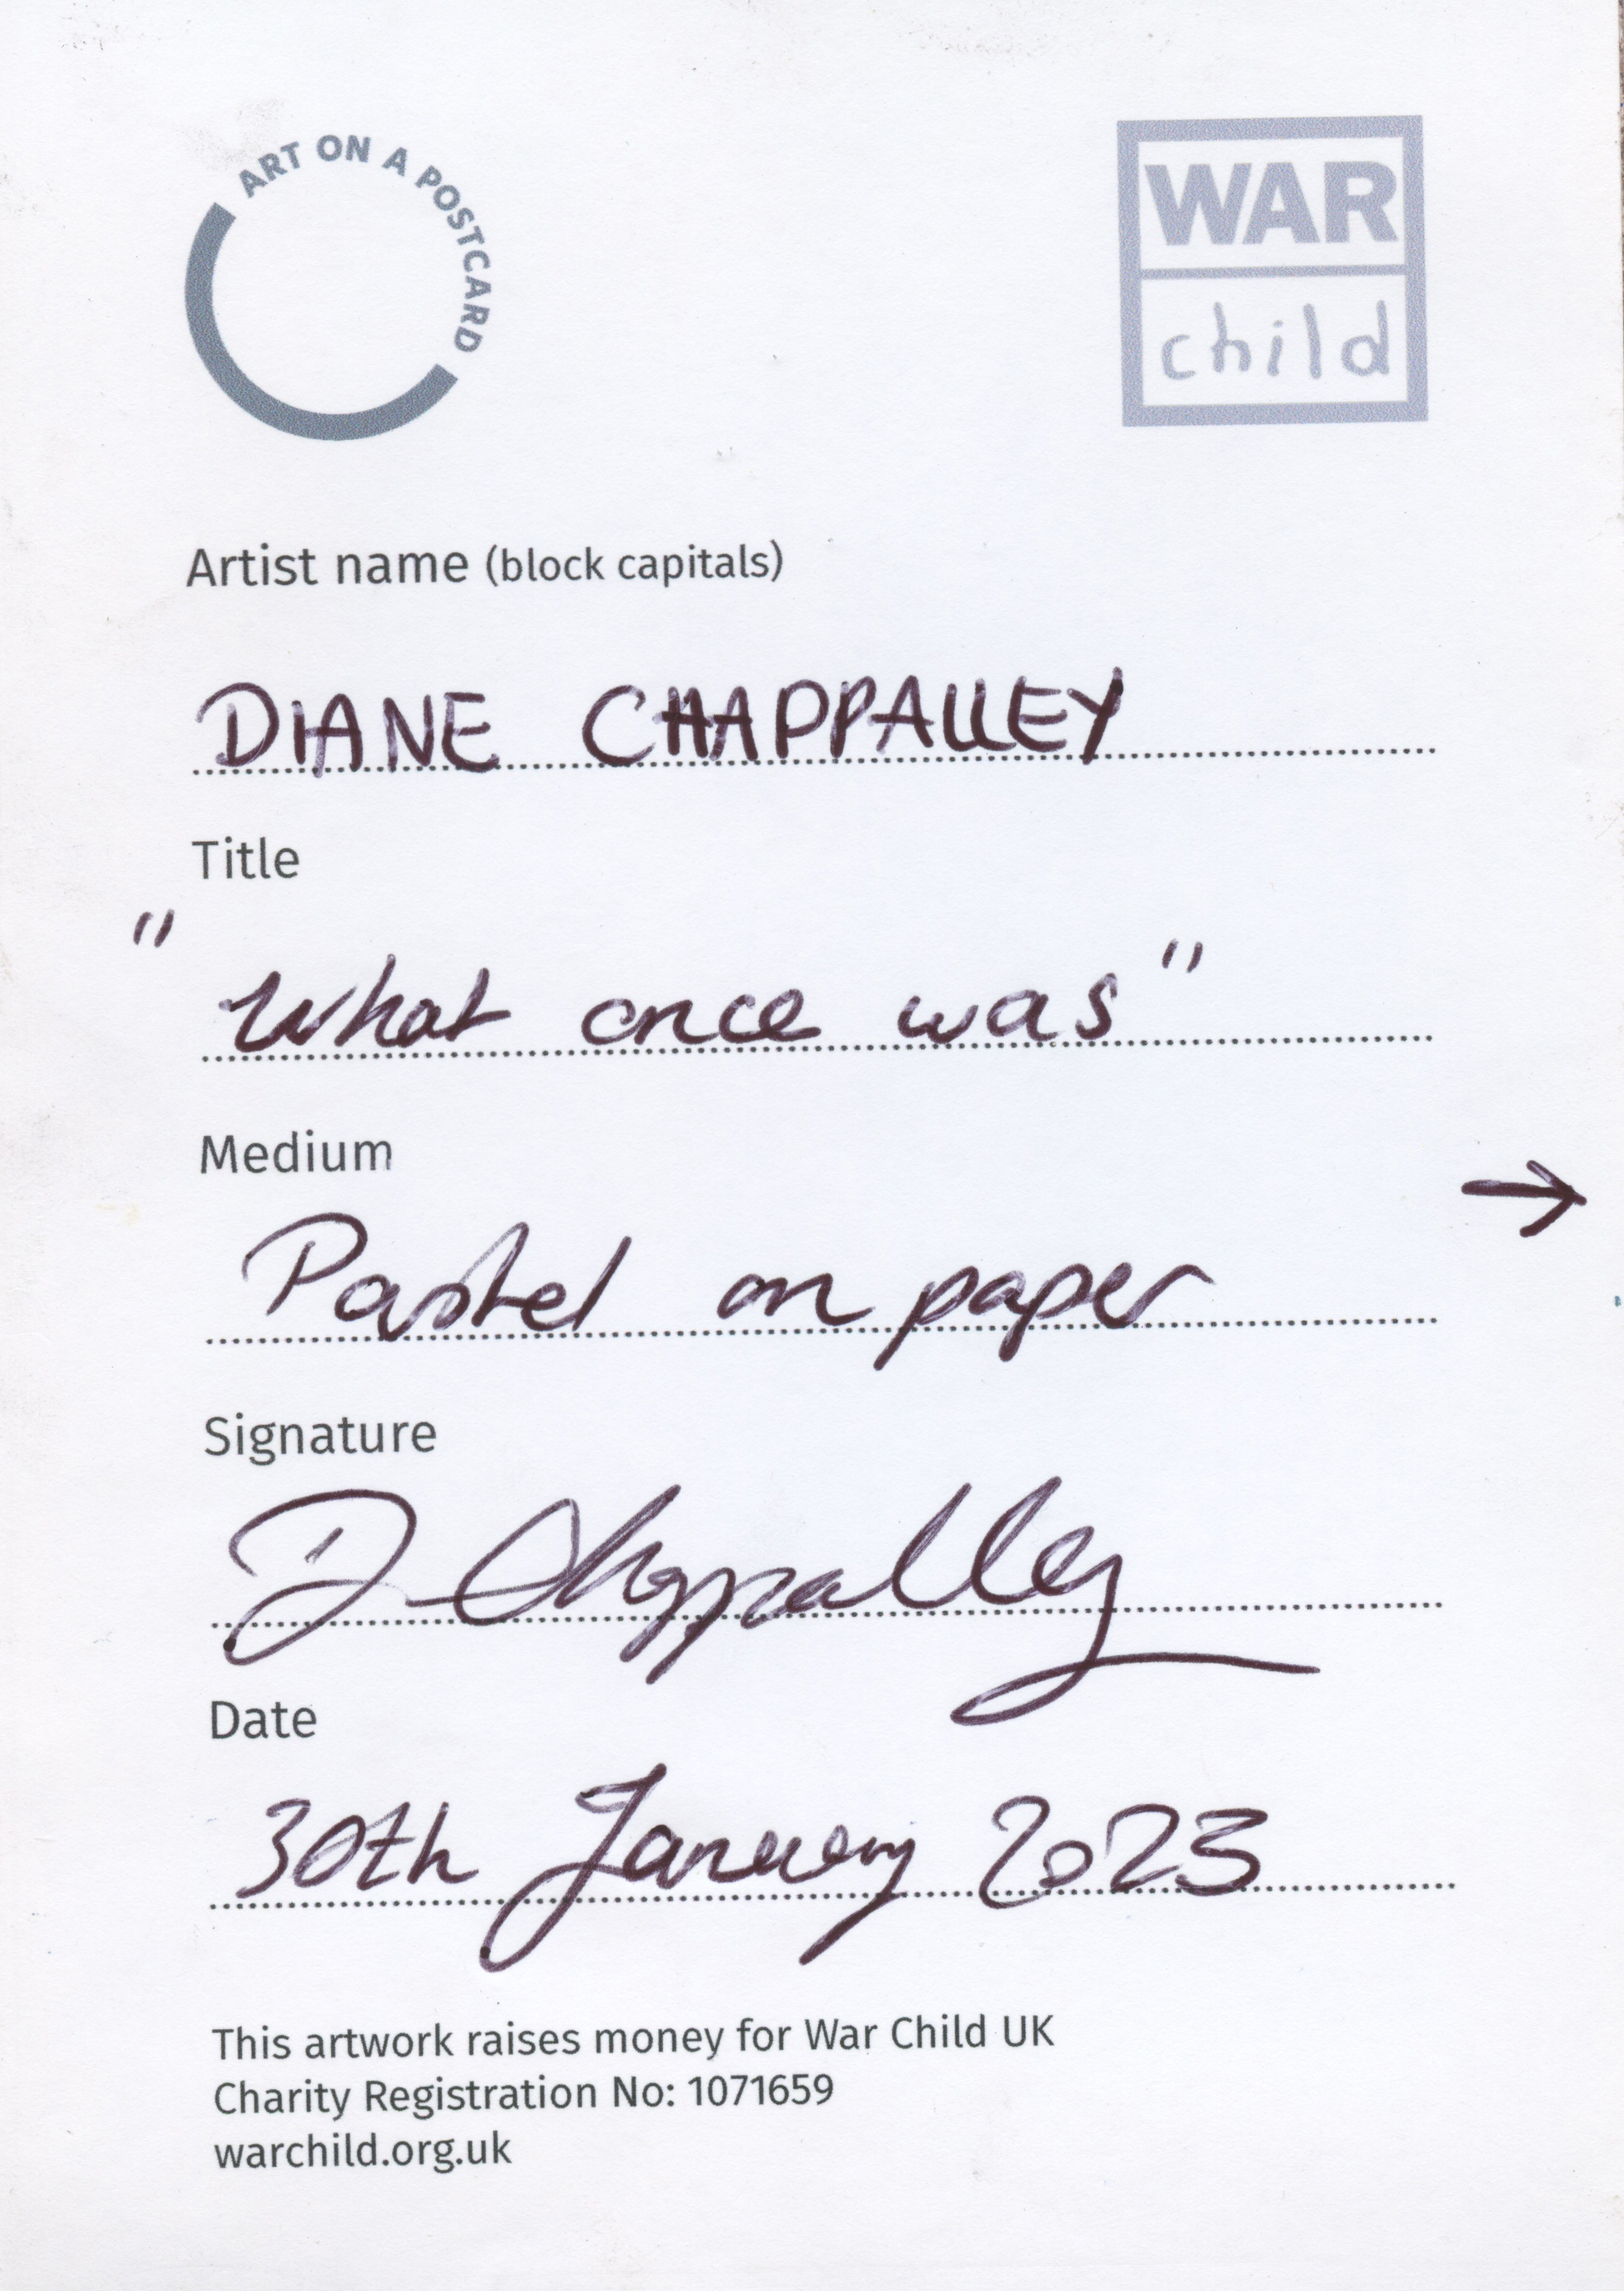 ART ON A POSTCARD
WAR
child
Artist name (block capitals)
DIANE CHAPPALLEY
Title
"What once was"
Medium
→
Pastel on paper
Signature
D Chappalley
Date
30th January 2023
This artwork raises money for War Child UK
Charity Registration No: 1071659
warchild.org.uk